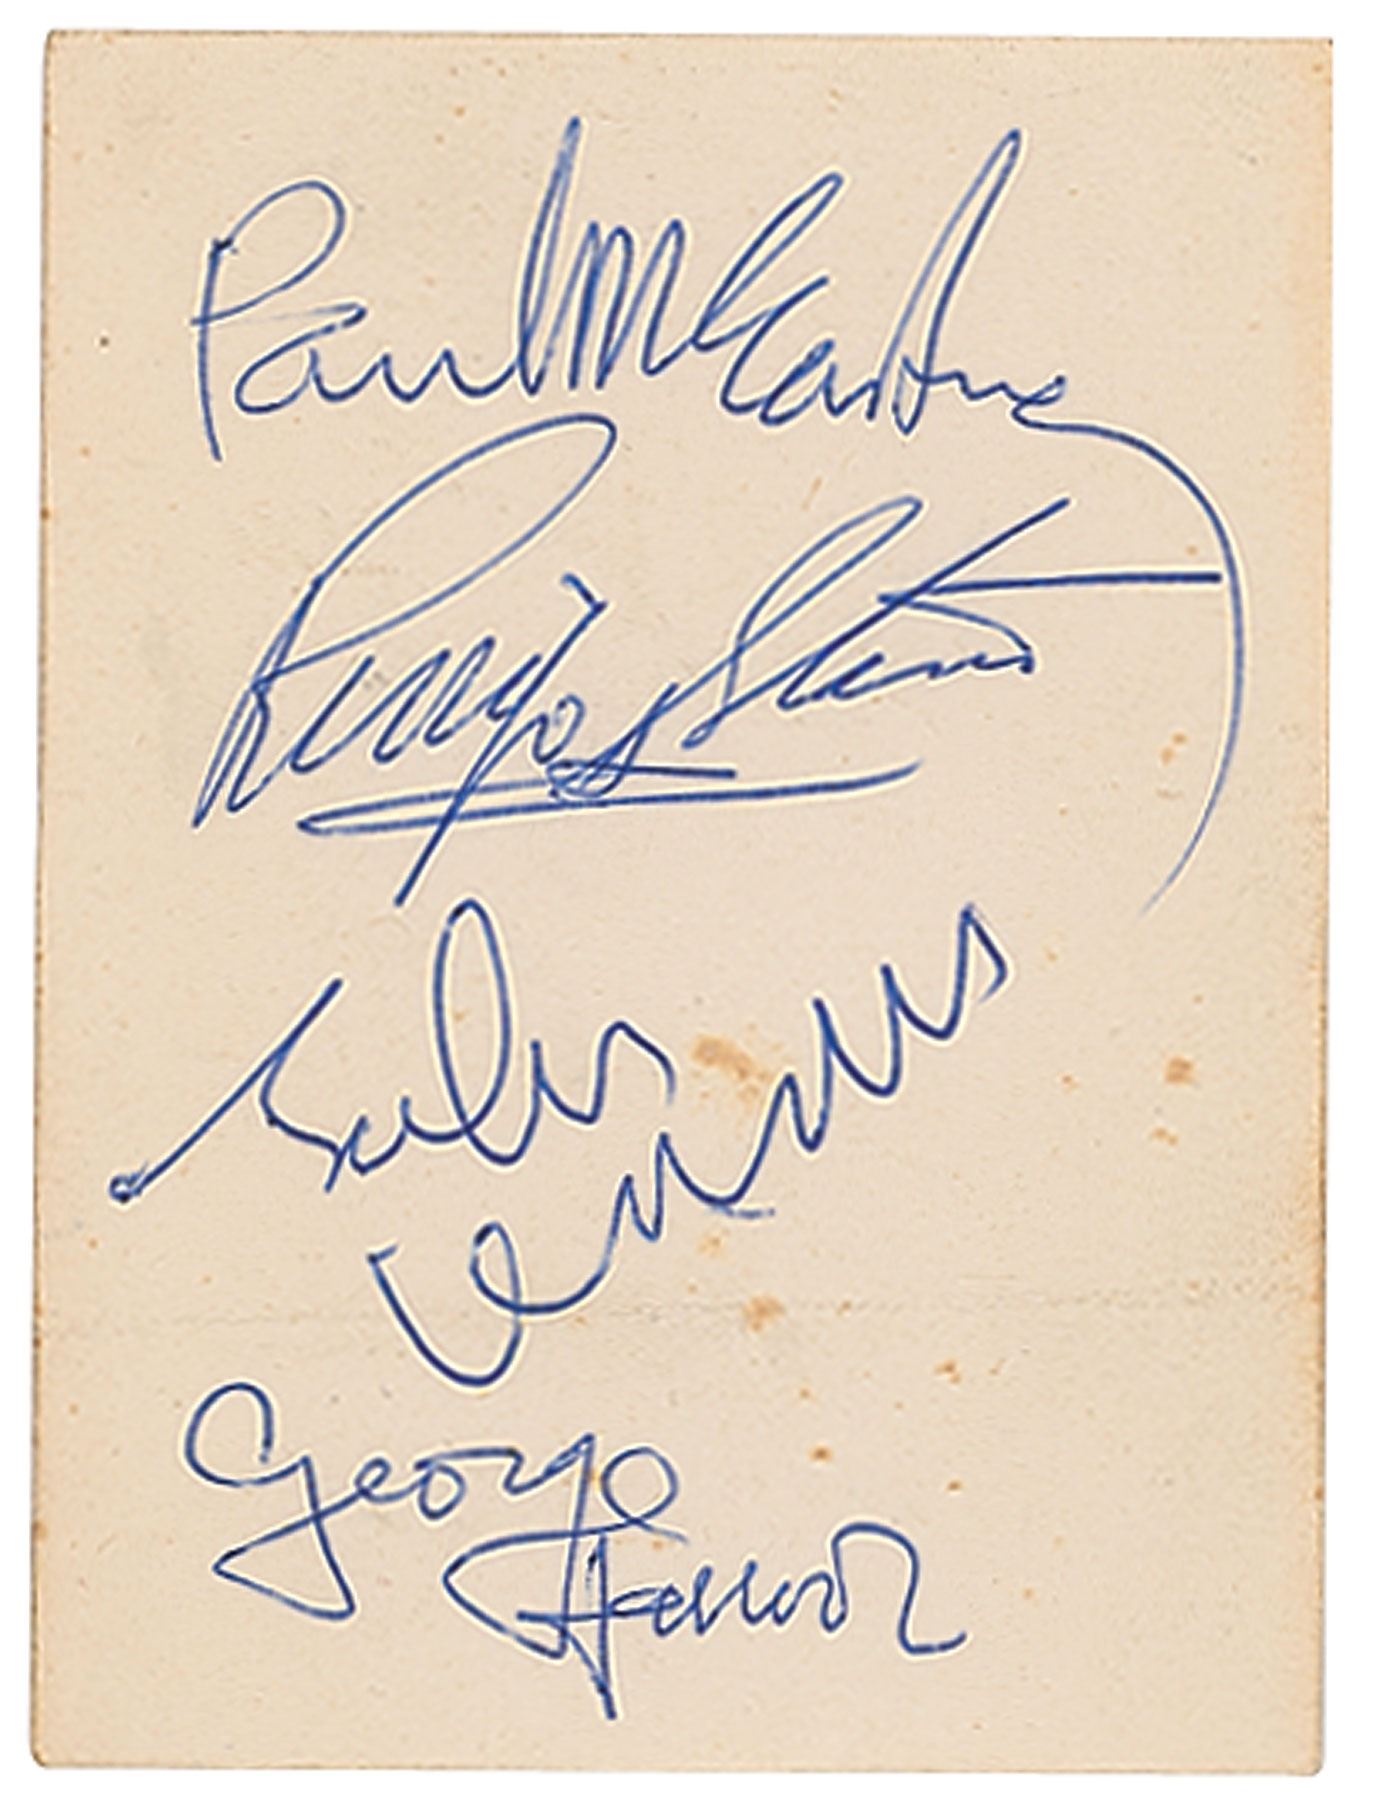 Paul McCartney
Ringo Starr
John
Lennon
George
Harrison